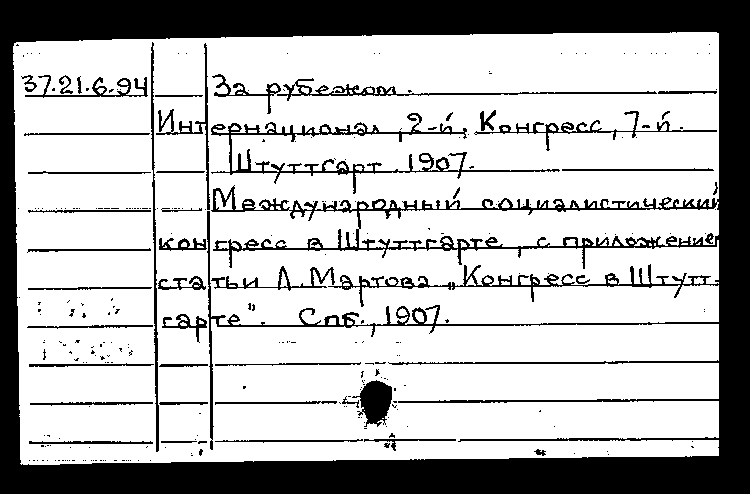 37.21.6.94 За рубежом.
Интернационал, 2-й, Конгресс, 7-й.
Штуттгарт. 1907.
Международный социалистический
конгресс в Штуттгарте, с приложением
статьи Л. Мартова „Конгресс в Штутт-
гарте". Спб., 1907.